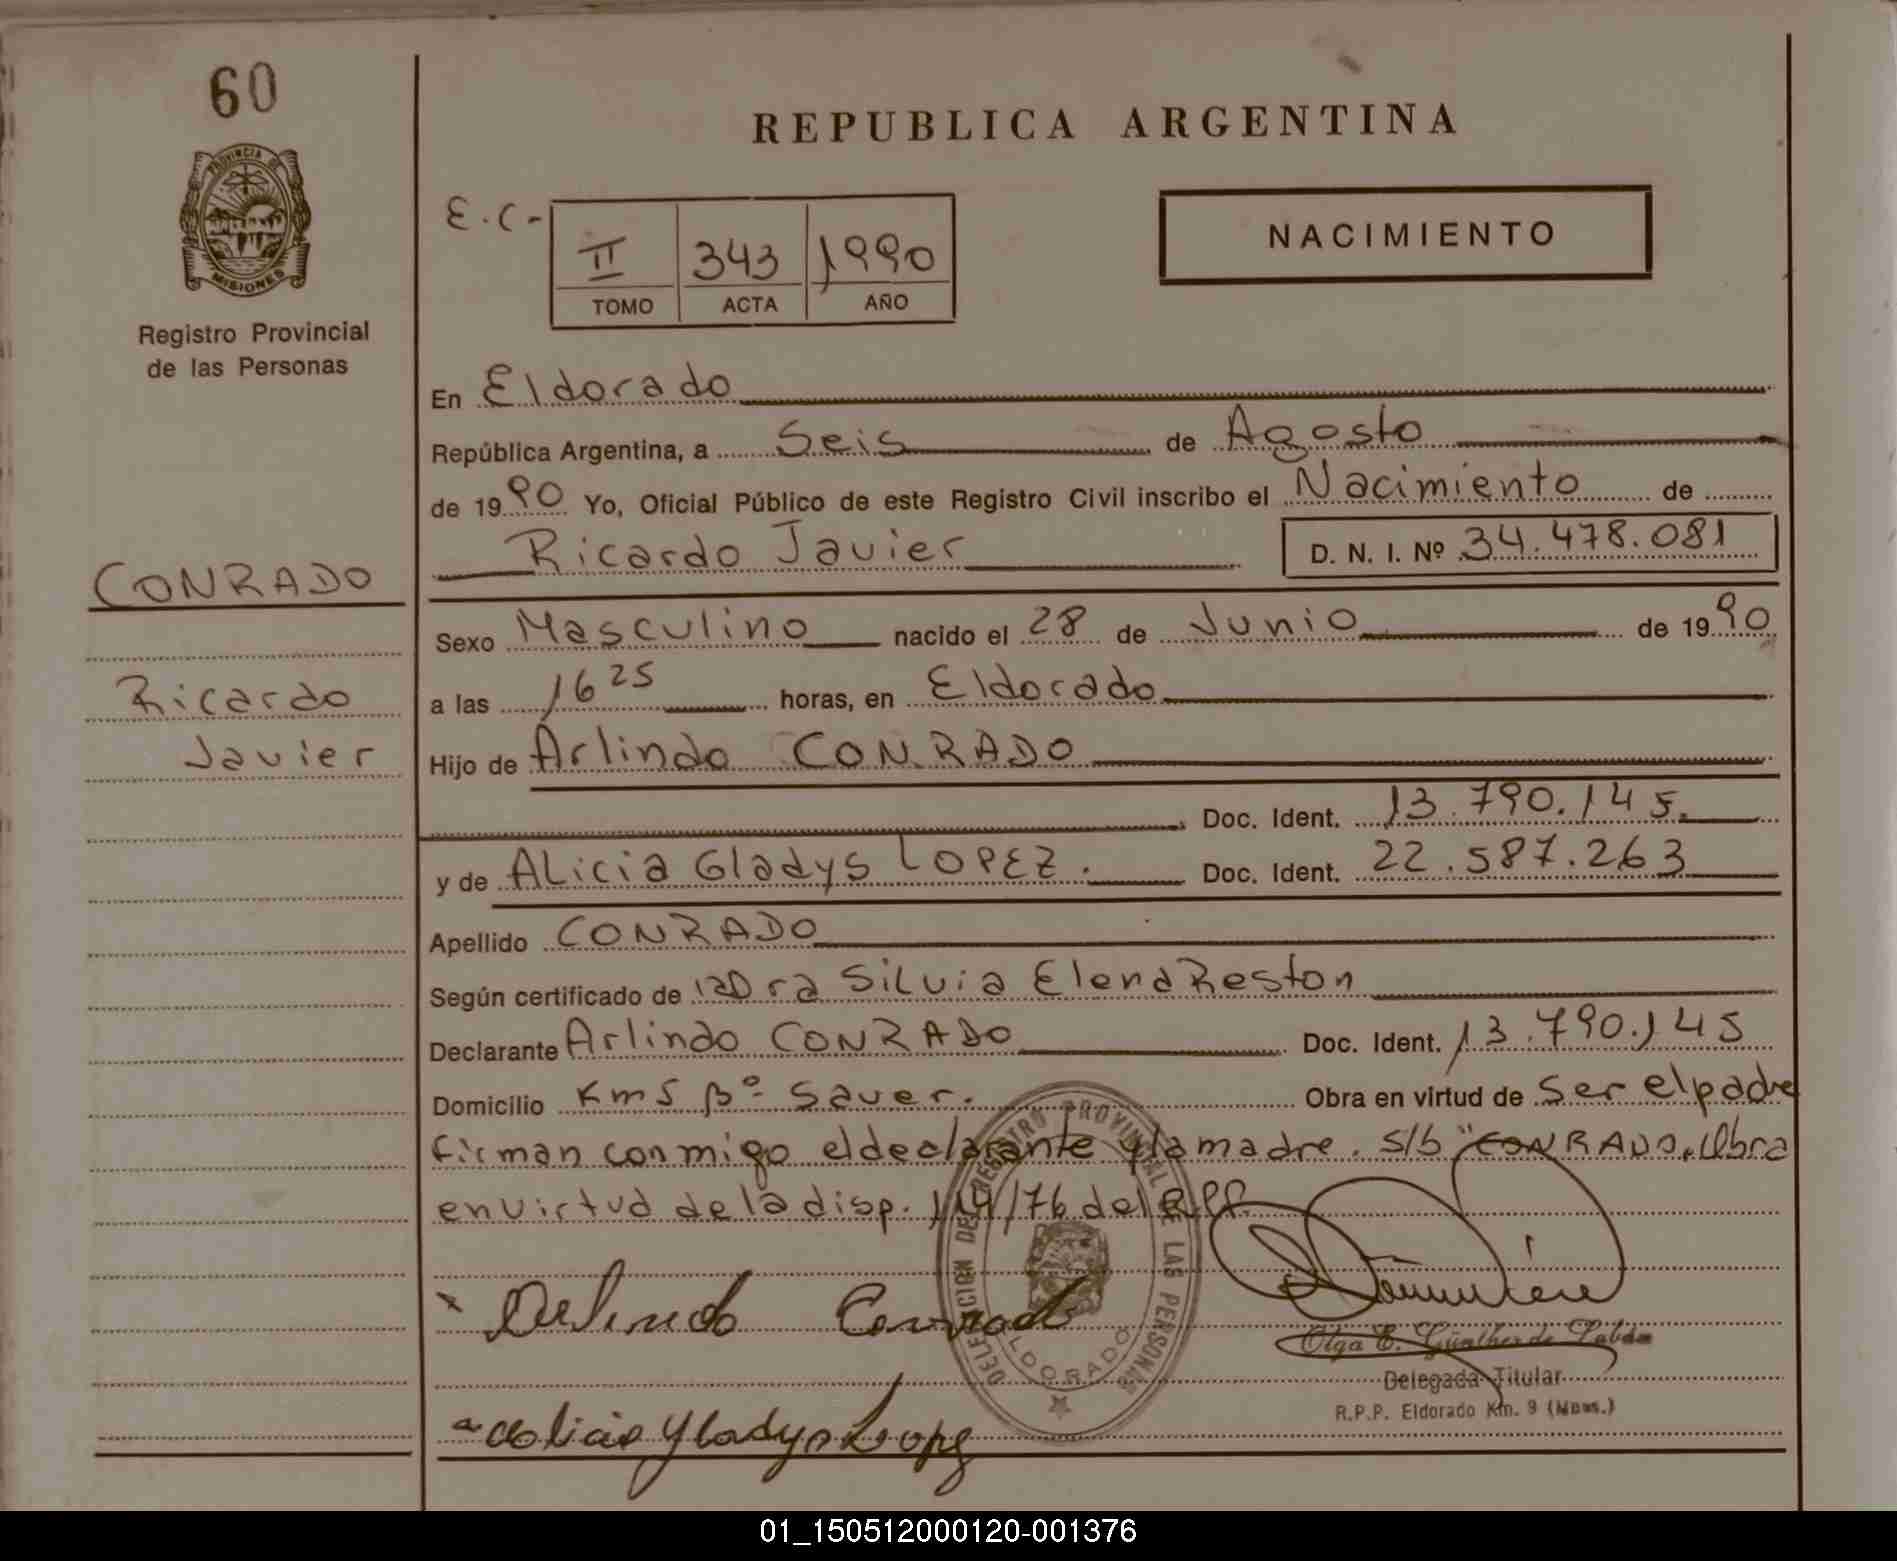 60
PROVINCIA DE
MISIONES
Registro Provincial
de las Personas
CONRADO
Ricardo
Javier
REPUBLICA ARGENTINA
E.C-
II 343 1990
TOMO ACTA AÑO
NACIMIENTO
En Eldorado
República Argentina, a Seis de Agosto
de 1990 Yo, Oficial Público de este Registro Civil inscribo el Nacimiento de
Ricardo Javier D. N. I. Nº 34.478.081
Sexo Masculino nacido el 28 de Junio de 1990
a las 16 25 horas, en Eldorado
Hijo de Arlindo CONRADO
Doc. Ident. 13.790.145.
y de Alicia Gladys LOPEZ. Doc. Ident. 22.587.263
Apellido CONRADO
Según certificado de la Dra Silvia Elena Reston
Declarante Arlindo CONRADO Doc. Ident. 13.790.145
Domicilio Km 5 Bº- Sauer. Obra en virtud de Ser el padre
firman conmigo el declarante y la madre. S/b "CONRADO. Obra
en virtud de la disp. 114/76 del R.P.P.
DELEGACION DEL REGISTRO PROVINCIAL DE LAS PERSONAS
ELDORADO
Arlindo Conrado
Olga E. Günther de
Delegada Titular
R.P.P. Eldorado Km. 9 (Mnes.)
Alicia Gladys Lopez
01_150512000120-001376